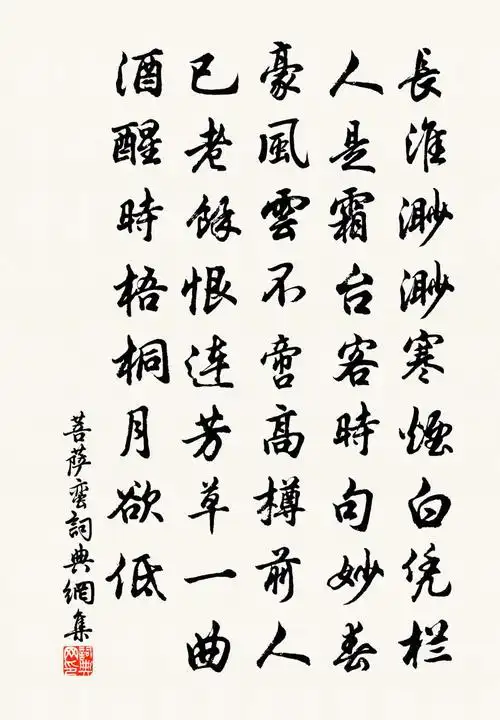 長淮渺渺寒煙白凭栏
人是霜台客時句妙春
豪風雲不啻高樽前人
已老餘恨连芳草一曲
酒醒時梧桐月欲低
菩薩蛮詞典網集
詞典网印